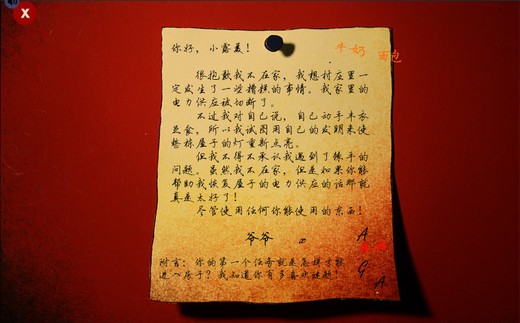 X
你好，小露茜！
牛奶
面包
很抱歉我不在家，我想村庄里一
定发生了一些糟糕的事情。我家里的
电力供应被切断了。
不过我对自己说，自己动手丰衣
足食，所以我试图用自己的发明来使
整栋屋子的灯重新点亮。
但我不得不承认我遇到了棘手的
问题。虽然我不在家，但是如果你能
帮助我恢复屋子的电力供应的话那就
真是太好了！
尽管使用任何你能使用的东西！
爷爷
A
G
A
附言：你的第一个任务就是怎样才能
进入房子？我知道你有多喜欢谜题！